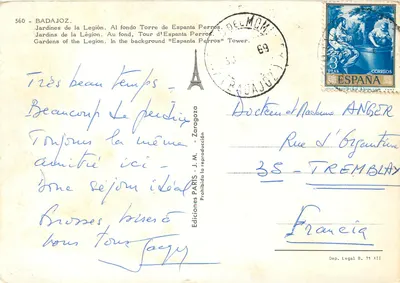 560 - BADAJOZ.
Jardines de la Legión. Al fondo Torre de Espanta Perros.
Jardins de la Légion. Au fond, Tour d'Espanta Perros.
Gardens of the Legion. In the background "Espanta Perros" Tower.
Très beau temps -
Beaucoup de
Toujours la même
amitié ici -
Donc séjour idéal
Grosses
vous tous
Ediciones PARIS - J. M. - Zaragoza
Prohibida la reproducción
69
BADAJOZ
CORREOS
ESPAÑA
Docteur et Madame ANGER
Rue d'Argentine
35 - TREMBLAY
Francia
Dep. Legal B.